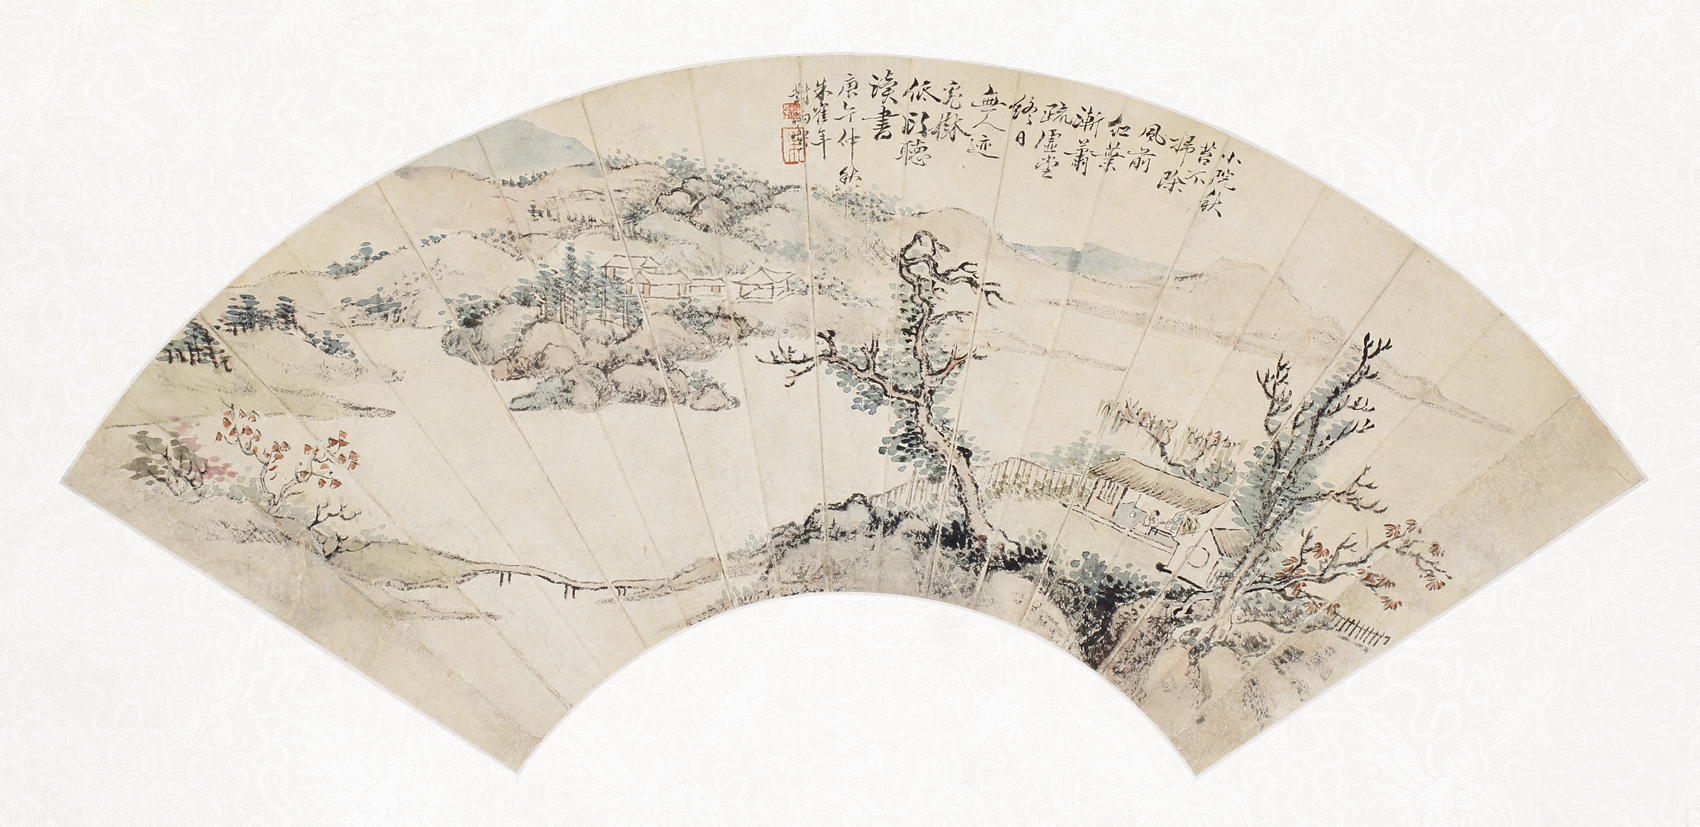 小院秋
苔不
掃除
風前
紅葉
漸蕭
疏虛堂
終日
無人迹
宛樹
低頭聽
讀書
庚午仲秋
朱崔年